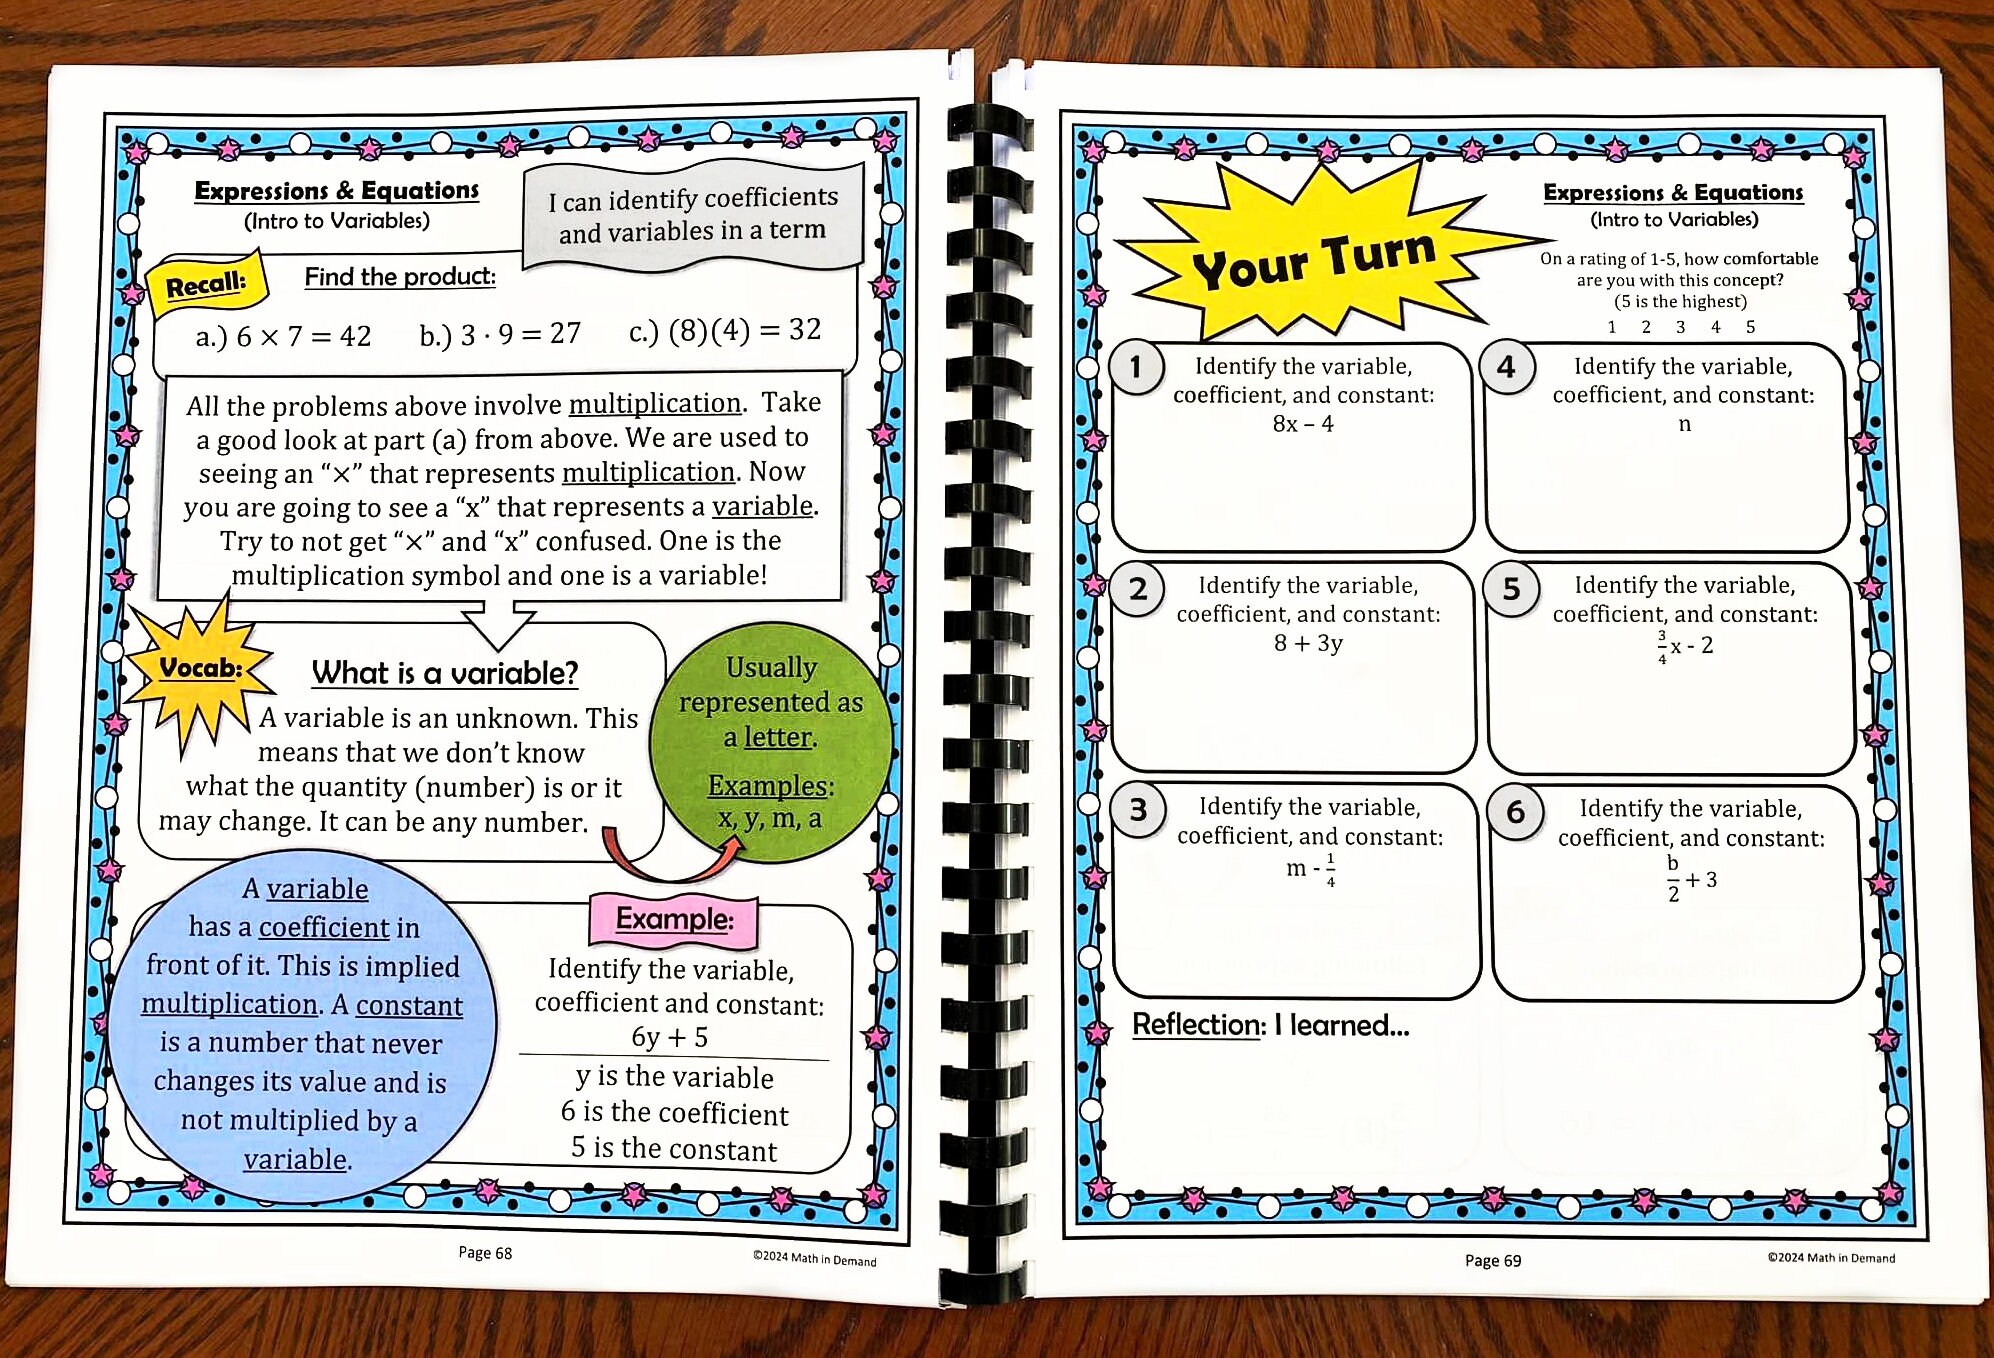 Expressions & Equations
(Intro to Variables)
I can identify coefficients
and variables in a term
Recall:
Find the product:
a.) 6 × 7 = 42 b.) 3 · 9 = 27 c.) (8)(4) = 32
All the problems above involve multiplication. Take
a good look at part (a) from above. We are used to
seeing an “×” that represents multiplication. Now
you are going to see a “x” that represents a variable.
Try to not get “×” and “x” confused. One is the
multiplication symbol and one is a variable!
Vocab:
What is a variable?
A variable is an unknown. This
means that we don’t know
what the quantity (number) is or it
may change. It can be any number.
Usually
represented as
a letter.
Examples:
x, y, m, a
A variable
has a coefficient in
front of it. This is implied
multiplication. A constant
is a number that never
changes its value and is
not multiplied by a
variable.
Example:
Identify the variable,
coefficient and constant:
6y + 5
y is the variable
6 is the coefficient
5 is the constant
Page 68
©2024 Math in Demand
Your Turn
Expressions & Equations
(Intro to Variables)
On a rating of 1-5, how comfortable
are you with this concept?
(5 is the highest)
1 2 3 4 5
1
Identify the variable,
coefficient, and constant:
8x – 4
4
Identify the variable,
coefficient, and constant:
n
2
Identify the variable,
coefficient, and constant:
8 + 3y
5
Identify the variable,
coefficient, and constant:
3/4 x - 2
3
Identify the variable,
coefficient, and constant:
m - 1/4
6
Identify the variable,
coefficient, and constant:
b/2 + 3
Reflection: I learned...
Page 69
©2024 Math in Demand